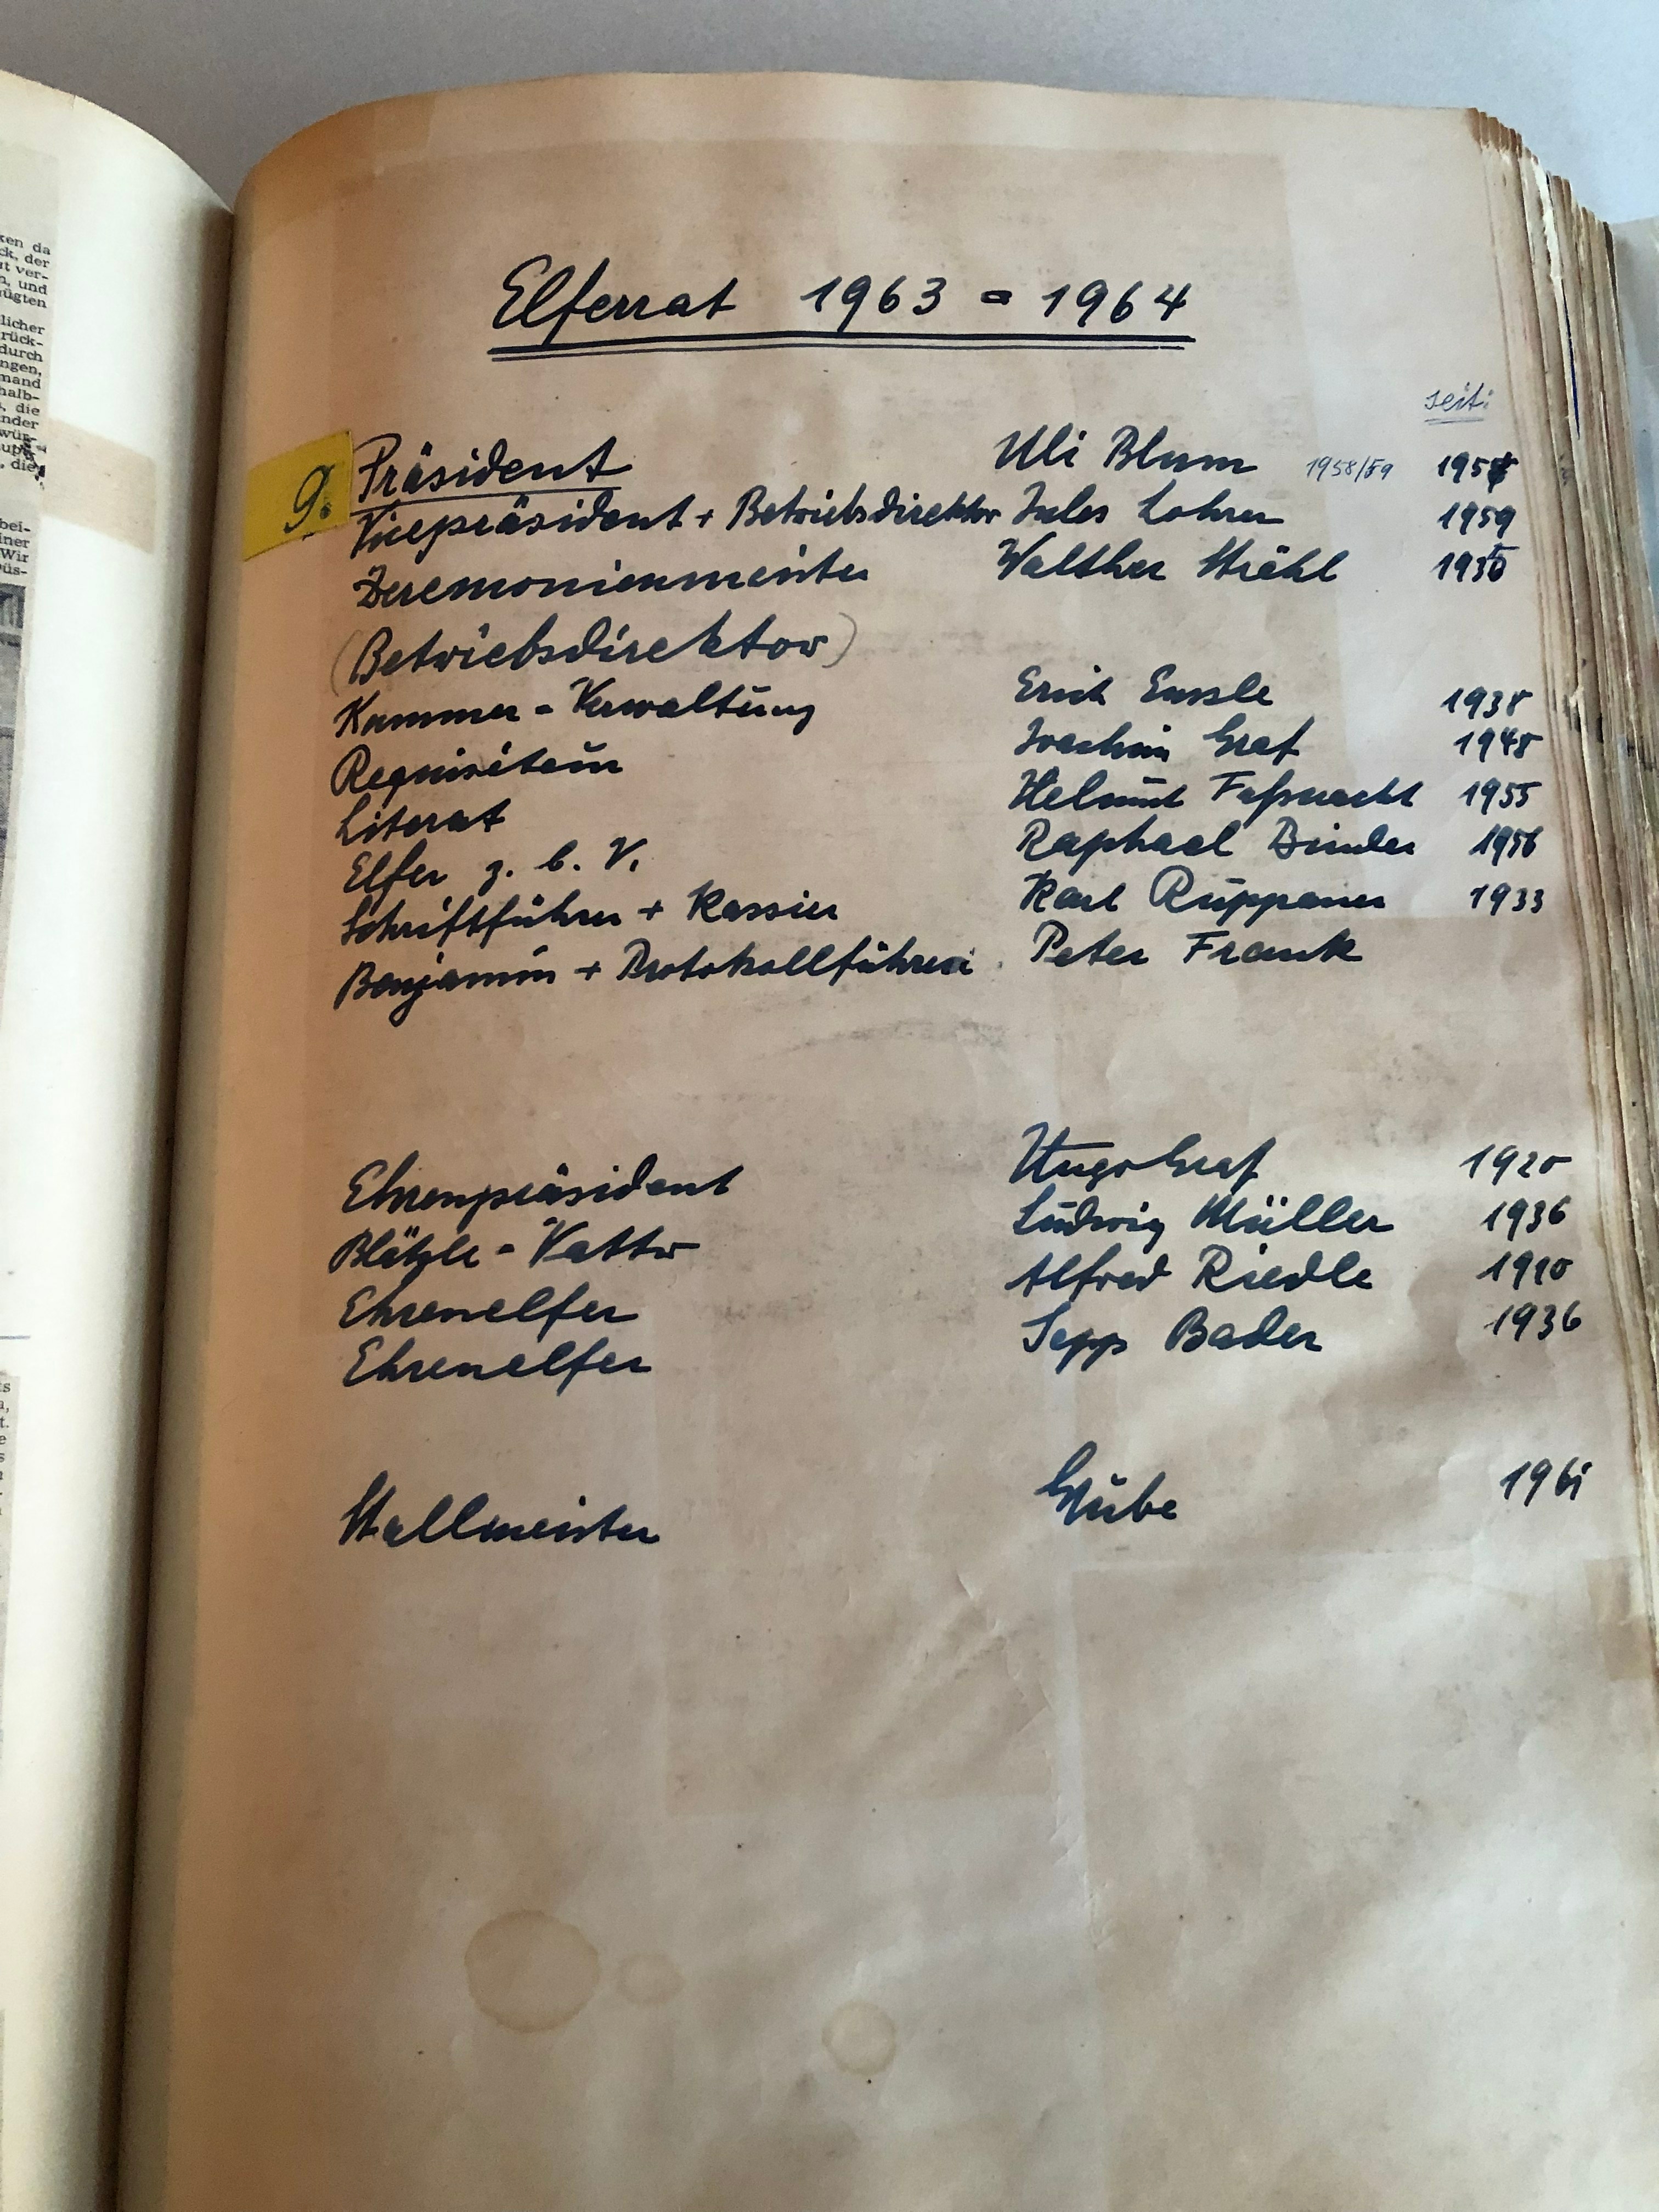 ken da
ck, der
ut ver-
n, und
nügten
licher
rück-
durch
ngen,
mand
halb-
, die
nder
wür-
, die
bei-
iner
Wir
Düs-
Elferrat 1963 = 1964
seit:
9. Präsident Uli Blum 1958/59 195
Vicepräsident + Betriebsdirektor Jules Lohrer 1959
Zeremonienmeister Walther Strähl
(Betriebsdirektor)
Kammer - Verwaltung Erich Enssle 1938
Requisiteur Joachim Graf 1948
Literat Helmut Faßnacht 1955
Elfer z. b. V. Raphael Binder 1956
Schriftführer + Kassier Karl Ruppaner 1933
Benjamin + Protokollführer Peter Frank
Ehrenpräsident Hugo Graf 1920
Blätzle - Vatter Ludwig Müller 1936
Ehrenelfer Alfred Riedle 1910
Ehrenelfer Sepp Bader 1936
Stallmeister Grube 1961